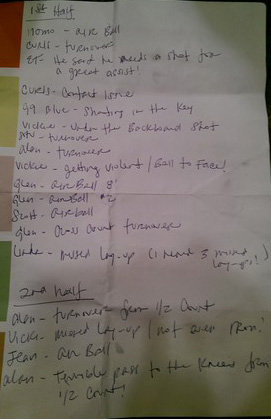 1st Half
Momo - AIR Ball
Curds - turnover
ET - He said he needs a shot for
a great assist!
Curds - Contact Issue
99 Blue - Shooting in the Key
Vickie - Under the Backboard Shot
turnover
Alan - turnover
Vickie - getting violent / Ball to Face!
Glen - AIR Ball 8'
Glen - AIR Ball #2
Scott - Airball
Glen - Cross Court turnover
Linda - missed lay-up (I mean 3 missed
lay-ups!)
2nd Half
Alan - turnover from 1/2 Court
Vicki - missed lay-up / not even iron!
Jean - AIR Ball
Alan - Terrible pass to the knees from
1/2 Court!